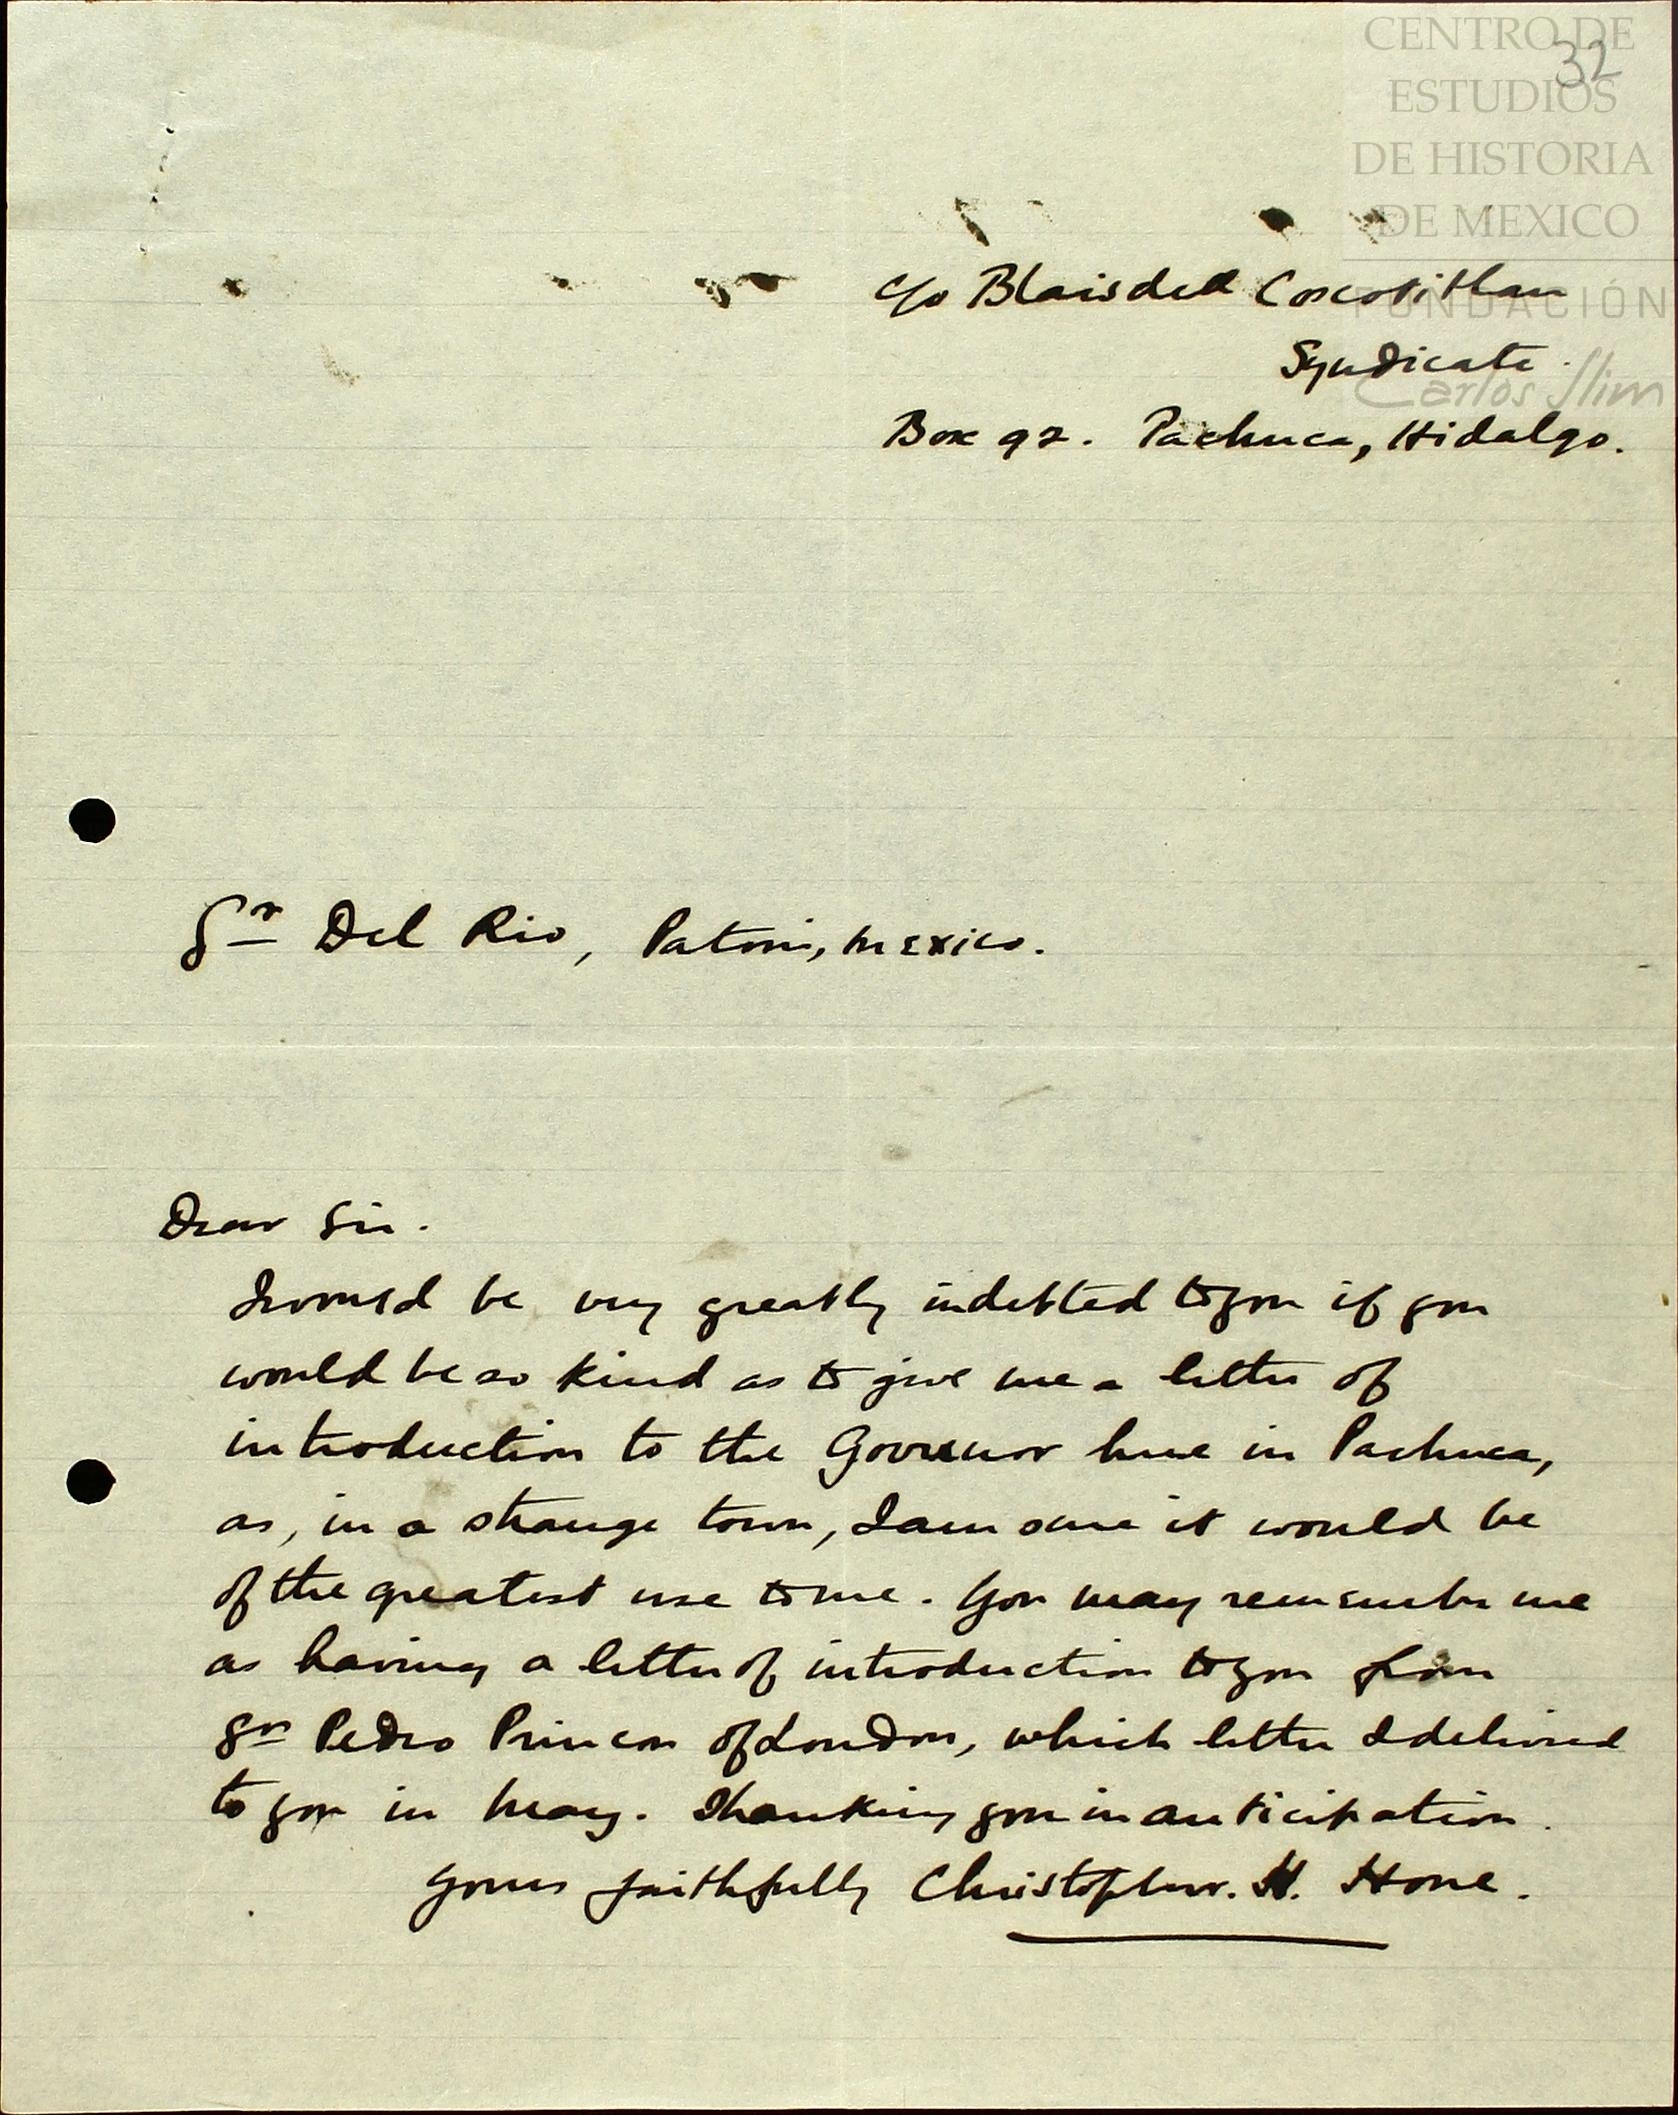 CENTRO DE
ESTUDIOS
DE HISTORIA
DE MEXICO
FUNDACIÓN
Carlos Slim
32
c/o Blaisdell Coscotitlan
Syndicate.
Box 92. Pachuca, Hidalgo.
Sr Del Rio, Patoni, Mexico.
Dear Sir.
I would be very greatly indebted to you if you
would be so kind as to give me a letter of
introduction to the Governor here in Pachuca,
as, in a strange town, I am sure it would be
of the greatest use to me. You may remember me
as having a letter of introduction to you from
Sr Pedro of London, which letter I delivered
to you in May. Thanking you in anticipation.
Yours faithfully Christopher. H. Hone.